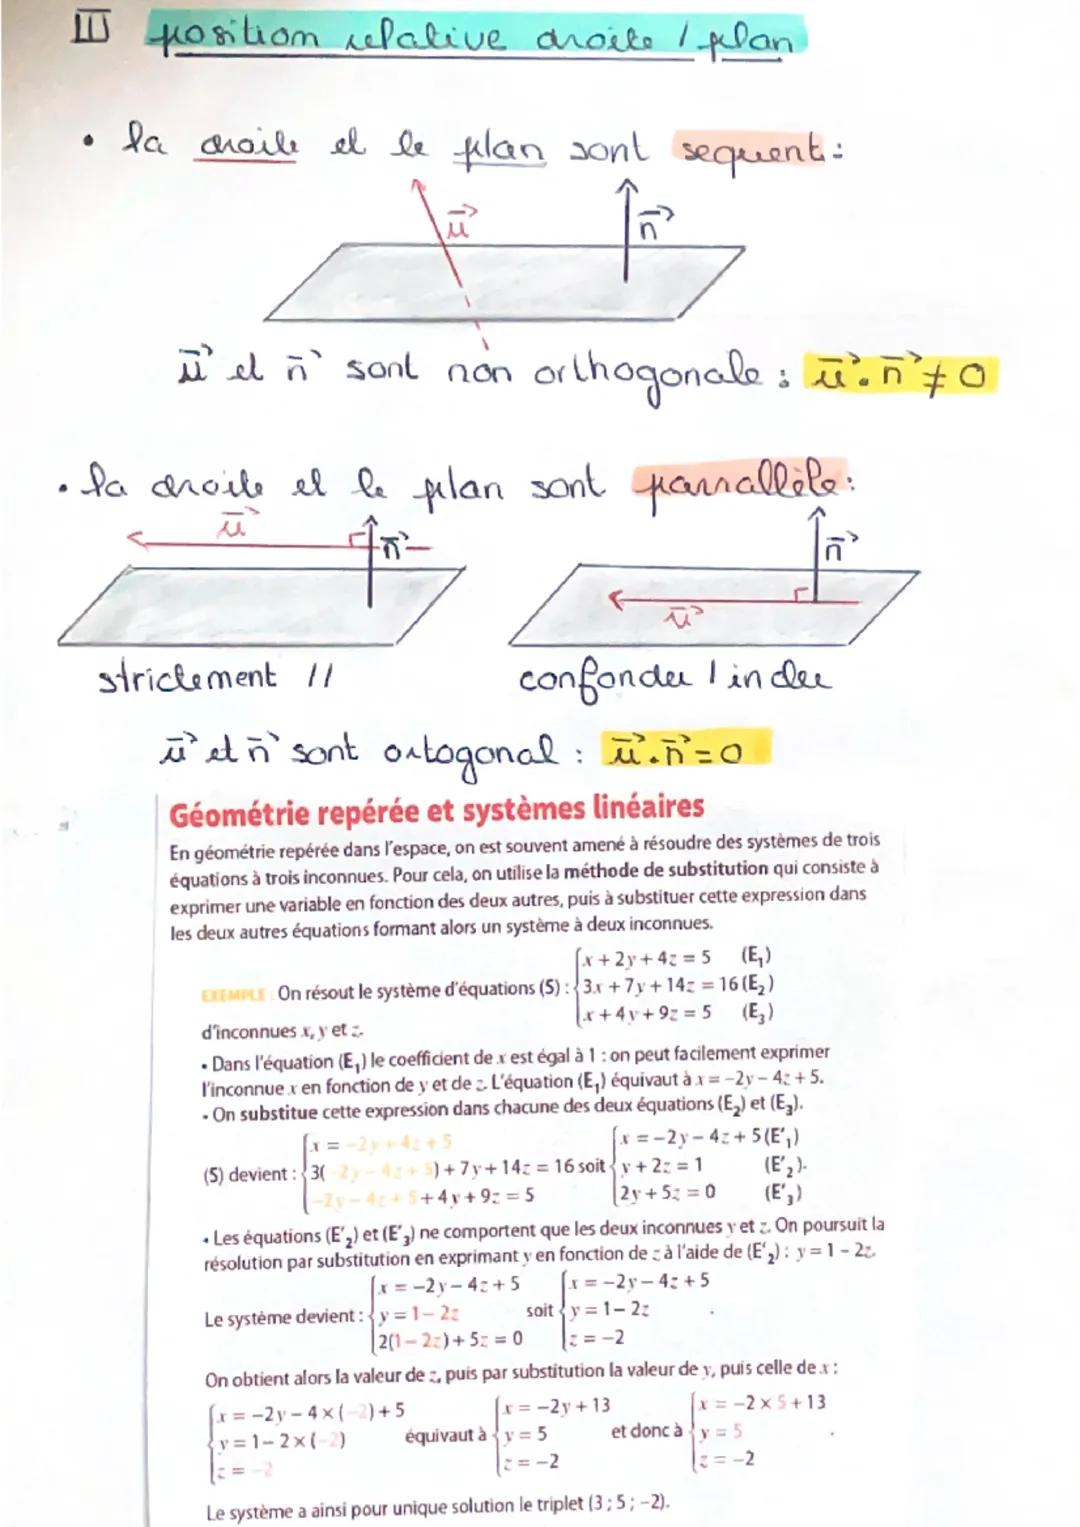 III position relative droite / plan
• la droite et le plan sont sequent :
u⃗ n⃗
u⃗ et n⃗ sont non orthogonale : u⃗ . n⃗ ≠ 0
• la droite et le plan sont parrallèle :
u⃗ n⃗ n⃗
u⃗
strictement // confondu / inclu
u⃗ et n⃗ sont ortogonal : u⃗ . n⃗ = 0
Géométrie repérée et systèmes linéaires
En géométrie repérée dans l'espace, on est souvent amené à résoudre des systèmes de trois
équations à trois inconnues. Pour cela, on utilise la méthode de substitution qui consiste à
exprimer une variable en fonction des deux autres, puis à substituer cette expression dans
les deux autres équations formant alors un système à deux inconnues.
x + 2y + 4z = 5 (E₁)
EXEMPLE On résout le système d'équations (S) : 3x + 7y + 14z = 16 (E₂)
x + 4y + 9z = 5 (E₃)
d'inconnues x, y et z.
• Dans l'équation (E₁) le coefficient de x est égal à 1 : on peut facilement exprimer
l'inconnue x en fonction de y et de z. L'équation (E₁) équivaut à x = –2y – 4z + 5.
• On substitue cette expression dans chacune des deux équations (E₂) et (E₃).
x = –2y + 4z + 5 x = –2y – 4z + 5 (E'₁)
(S) devient : 3(–2y – 4z + 5) + 7y + 14z = 16 soit y + 2z = 1 (E'₂).
–2y – 4z + 5 + 4y + 9z = 5 2y + 5z = 0 (E'₃)
• Les équations (E'₂) et (E'₃) ne comportent que les deux inconnues y et z. On poursuit la
résolution par substitution en exprimant y en fonction de z à l'aide de (E'₂) : y = 1 – 2z.
x = –2y – 4z + 5 x = –2y – 4z + 5
Le système devient : y = 1 – 2z soit y = 1 – 2z .
2(1 – 2z) + 5z = 0 z = –2
On obtient alors la valeur de z, puis par substitution la valeur de y, puis celle de x :
x = –2y – 4 × (–2) + 5 x = –2y + 13 x = –2 × 5 + 13
y = 1 – 2 × (–2) équivaut à y = 5 et donc à y = 5 .
z = –2 z = –2 z = –2
Le système a ainsi pour unique solution le triplet (3 ; 5 ; –2).